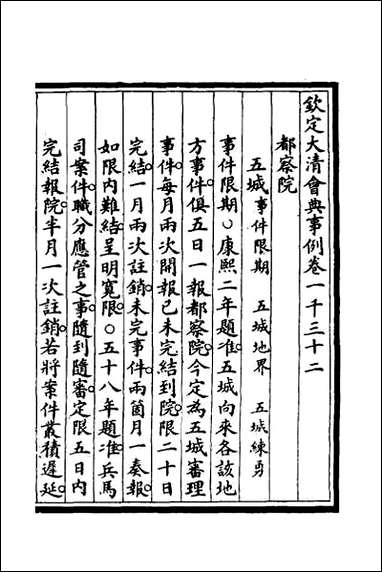 欽定大清會典事例卷一千三十二
都察院
五城事件限期 五城地界 五城練勇
事件限期○康熙二年題准五城向來各該地
方事件俱五日一報都察院今定為五城審理
事件每月兩次開報已未完結到院限二十日
完結一月兩次註銷未完事件兩箇月一奏報
如限內難結呈明寬限○五十八年題准兵馬
司案件職分應管之事隨到隨審定限五日內
完結報院半月一次註銷若將案件叢積遲延